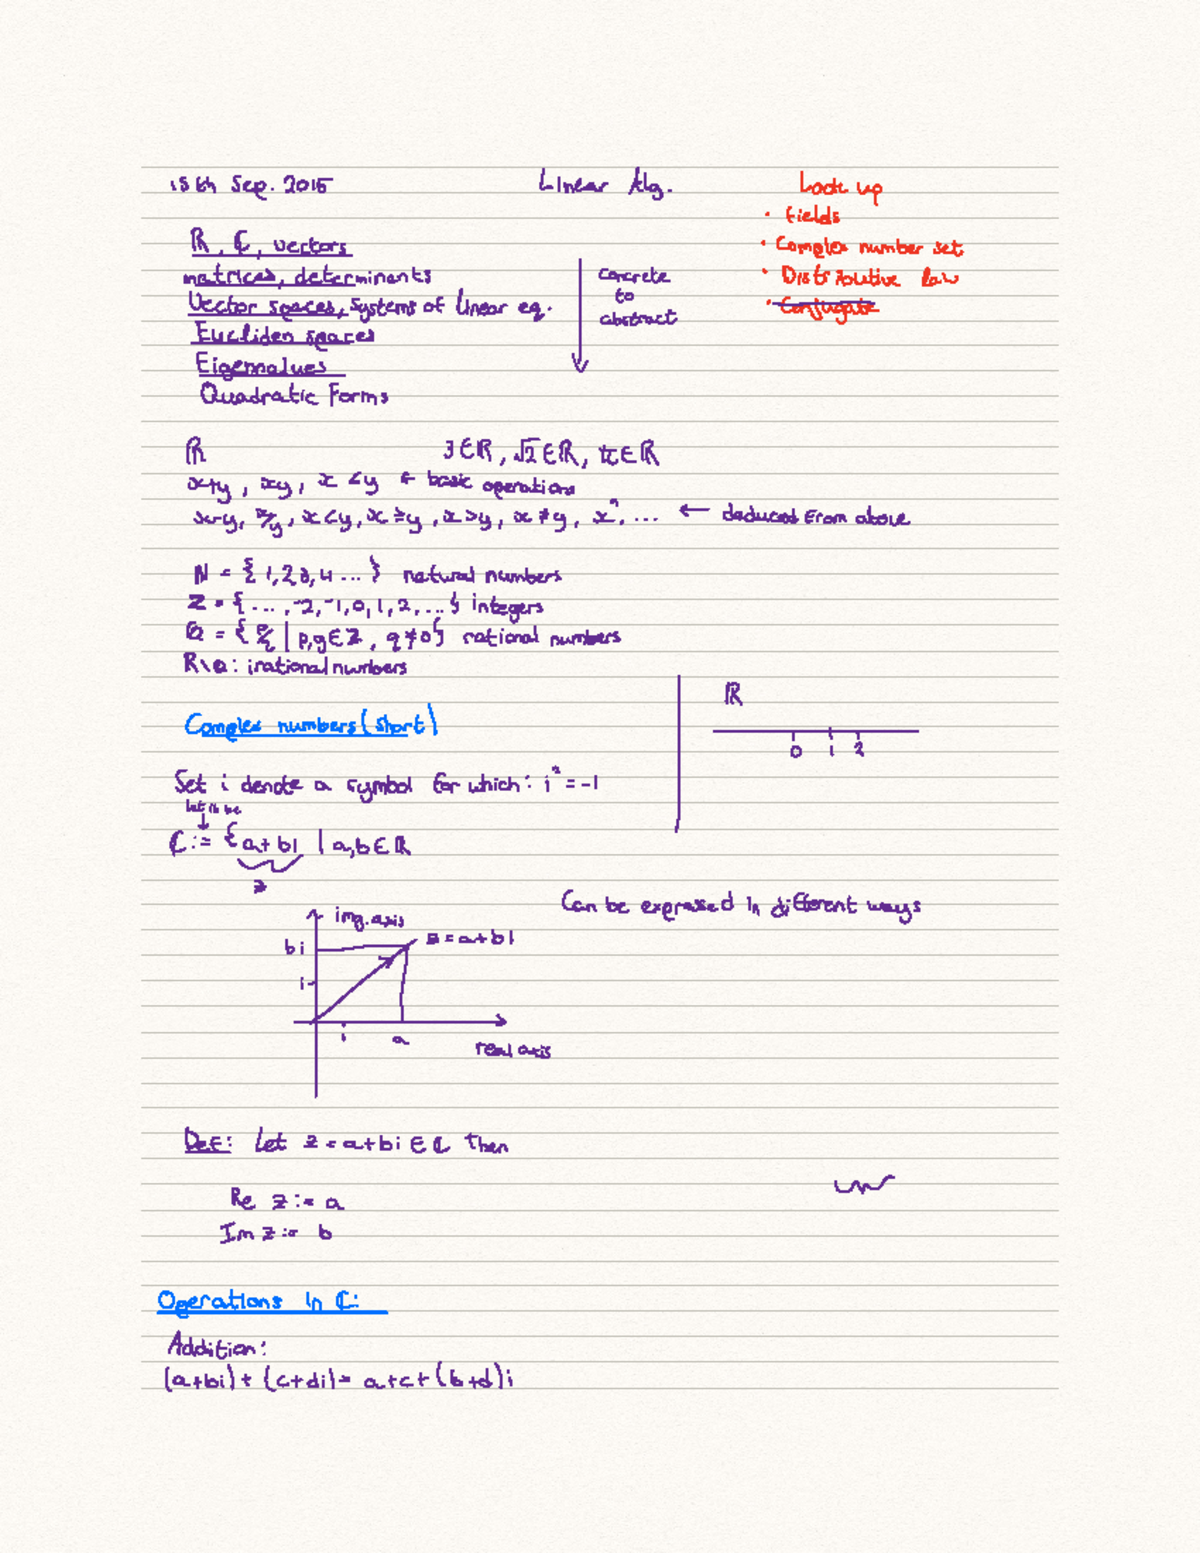 15th Sep. 2015
Linear Alg.
Look up
· Fields
· Complex number set
· Distributive law
· Conjugate
ℝ, ℂ, vectors
matrices, determinants
Vector spaces, Systems of linear eq.
Eucliden spaces
Eigenvalues
Quadratic Forms
concrete
to
abstract
ℝ
3∈ℝ, √2∈ℝ, π∈ℝ
x+y, xy, x<y ← basic operations
x-y, x/y, x<y, x≥y, x>y, x≠y, xⁿ, ... ← deduced from above
N = {1,2,3,4...} natural numbers
Z = {..., -2, -1, 0, 1, 2, ...} integers
Q = {p/q | p,q∈Z, q≠0} rational numbers
R\Q: irational numbers
Complex numbers (short)
ℝ
0 1 2
Set i denote a symbol for which: i² = -1
let it be
ℂ := {a+bi | a,b∈ℝ
z
Can be expressed in different ways
img. axis
bi
z=a+bi
i
1
a
real axis
Def: Let z = a+bi ∈ ℂ then
Re z := a
Im z := b
Operations in ℂ:
Addition:
(a+bi) + (c+di) = a+c+(b+d)i